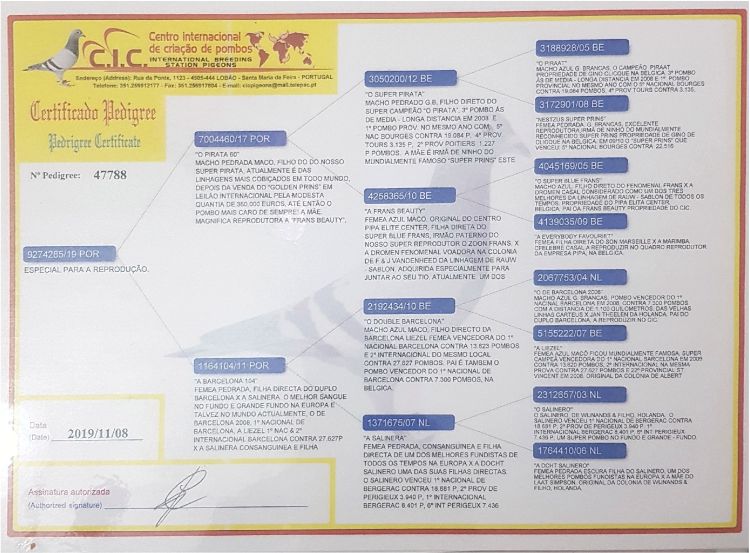 C.I.C.
Centro internacional
de criação de pombos
INTERNATIONAL BREEDING
STATION PIGEONS
Endereço (Address): Rua da Ponte, 1123 - 4505-444 LOBÃO - Santa Maria da Feira - PORTUGAL
Telefone: 351.256912177 - Fax: 351.256917804 - E-mail: ciopigeons@mail.telepac.pt
Certificado Pedigree
Pedrigree Certificate
Nº Pedigree: 47788
9274285/19 POR
ESPECIAL PARA A REPRODUÇÃO.
Data
(Date) 2019/11/08
Assinatura autorizada
(Authorized signature)
7004460/17 POR
"O PIRATA 60"
MACHO PEDRADA MACO, FILHO DO DO NOSSO
SUPER PIRATA, ATUALMENTE É DAS
LINHAGENS MAIS COBIÇADOS EM TODO MUNDO,
DEPOIS DA VENDA DO "GOLDEN PRINS" EM
LEILÃO INTERNACIONAL PELA MODESTA
QUANTIA DE 360,000 EUROS, ATÉ ENTÃO O
POMBO MAIS CARO DE SEMPRE! A MÃE.
MAGNIFICA REPRODUTORA A "FRANS BEAUTY",
1164104/11 POR
"A BARCELONA 104"
FEMEA PEDRADA, FILHA DIRECTA DO DUPLO
BARCELONA X A SALINERA. O MELHOR SANGUE
NO FUNDO E GRANDE FUNDO NA EUROPA E
TALVEZ NO MUNDO ACTUALMENTE, O DE
BARCELONA 2008, 1º NACIONAL DE
BARCELONA, A LIEZEL 1º NAC & 2º
INTERNATIONAL BARCELONA CONTRA 27.627P
X A SALINERA CONSANGUINEA E FILHA
3050200/12 BE
"O SUPER PIRATA"
MACHO PEDRADO G.B, FILHO DIRETO DO
SUPER CAMPEÃO "O PIRATA". 3º POMBO ÀS
DE MEDIA - LONGA DISTANCIA EM 2008 E
1º POMBO PROV. NO MESMO ANO COM; 5º
NAC BOURGES CONTRA 19.084 P. 4º PROV
TOURS 3.135 P, 2º PROV POITIERS 1.227
P POMBOS. A MÃE É IRMÃ DE NINHO DO
MUNDIALMENTE FAMOSO "SUPER PRINS" ESTE
4256365/10 BE
"A FRANS BEAUTY"
FEMEA AZUL MACO, ORIGINAL DO CENTRO
PIPA ELITE CENTER, FILHA DIRETA DO
SUPER BLUE FRANS, IRMÃO PATERNO DO
NOSSO SUPER REPRODUTOR O ZOON FRANS, X
A DROMEN FENOMENAL VOADORA NA COLONIA
DE F & J VANDENHEED DA LINHAGEM DE RAUW
- SABLON. ADQUIRIDA ESPECIALMENTE PARA
JUNTAR AO SEU TIO. ATUALMENTE UM DOS
2192434/10 BE
"O DOUBLE BARCELONA"
MACHO AZUL MACO, FILHO DIRECTO DA
BARCELONA LIEZEL FEMEA VENCEDORA DO 1º
NACIONAL BARCELONA CONTRA 13.623 POMBOS
E 2º INTERNATIONAL DO MESMO LOCAL
CONTRA 27.627 POMBOS. PAI É TAMBEM O
POMBO VENCEDOR DO 1º NACIONAL DE
BARCELONA CONTRA 7.300 POMBOS, NA
BELGICA.
1371675/07 NL
"A SALINERA"
FEMEA PEDRADA, CONSANGUINEA E FILHA
DIRECTA DE UM DOS MELHORES FUNDISTAS DE
TODOS OS TEMPOS NA EUROPA X A DOCHT
SALINERO UMA DAS SUAS FILHAS DIRECTAS.
O SALINERO VENCEU 1º NACIONAL DE
BERGERAC CONTRA 18.681 P, 2º PROV DE
PERIGIEUX 3.940 P, 1º INTERNACIONAL
BERGERAC 8.401 P, 6º INT PERIGIEUX 7.436
3188928/05 BE
"O PIRAAT"
MACHO AZUL G. BRANCAS, O CAMPEÃO PIRAAT
PROPRIEDADE DE GINO CLICQUE NA BELGICA. 3º POMBO
ÀS DE MEDIA - LONGA DISTANCIA EM 2008 E 1º. POMBO
PROVINCIAL NO MESMO ANO COM O 5º NACIONAL BOURGES
CONTRA 19.084 POMBOS. 4º PROV TOURS CONTRA 3.135,
3172901/08 BE
"NESTZUS SUPER PRINS"
FEMEA PEDRADA. G. BRANCAS, EXCELENTE
REPRODUTORA,IRMÃ DE NINHO DO MUNDIALMENTE
RECONHECIDO SUPER PRINS PROPRIEDADE DE GINO DE
CLICQUE NA BELGICA. EM 09/10 O "SUPER PRINS" QUE
VENCEU 5º NACIONAL BOURGES CONTRA - 22.516
4045169/05 BE
"O SUPER BLUE FRANS"
MACHO AZUL, FILHO DIRETO DO FENOMENIAL FRANS X A
DROMEN CASAL CONSIDERADO COMO UM DOS TRES
MELHORES DA LINHAGEM DE RAUW - SABLON DE TODOS OS
TEMPOS. PROPRIEDADE DO PIPA ELITE CENTER,
BELGICA. PAI DA FRANS BEAUTY PROPRIEDADE DO CIC.
4139035/09 BE
"A EVERYBODY FAVOURIET"
FEMEA FILHA DIRETA DO SON MARSEILLE X A MARIMBA.
CELEBRE CASAL A REPRODUZIR NO QUADRO REPRODUTOR
DA EMPRESA PIPA, NA BELGICA.
2067753/04 NL
"O DE BARCELONA 2008"
MACHO AZUL G. BRANCAS, POMBO VENCEDOR DO 1º
NACINAL BARCELONA EM 2008, CONTRA 7.300 POMBOS
COM A DISTANCIA DE 1.100 QUILOMETROS, DAS VELHAS
LINHAS CARTEUS X JAN THEELEN DA HOLANDA. PAI DO
DUPLO BARCELONA, A REPRODUZIR NO CIC.
5155222/07 BE
"A LIEZEL"
FEMEA AZUL, MACO FICOU MUNDIALMENTE FAMOSA, SUPER
CAMPEÃ VENCEDORA DO 1º NACIONAL BARCELONA EM 2009
CONTRA 13.620 POMBOS, 2º INTERNACIONAL NA MESMA
PROVA CONTRA 27.627 POMBOS E 22º PROVINCIAL ST
VINCENT EM 2008. ORIGINAL DA COLONIA DE ALBERT
2312657/03 NL
"O SALINERO"
O SALINERO, DE WIJNANDS & FILHO, HOLANDA, O
SALINERO VENCEU 1º NACIONAL BERGERAC CONTRA DE
18.681 P, 2º PROV DE PERIGIEUX 3.940 P, 1º
INTERNACIONAL BERGERAC 8.401 P, 6º INT PERIGIEUX
7.436 P. UM SUPER POMBO NO FUNDO E GRANDE - FUNDO.
1764410/06 NL
"A DOHT SALINERO"
FEMEA PEDRADA ESCURA FILHA DO SALINERO, UM DOS
MELHORES POMBOS FUNDISTAS NA EUROPA X A MÃE DO
LAAT SIMPSON, ORIGINAL DA COLONIA DE WIJNANDS &
FILHO, HOLANDA.